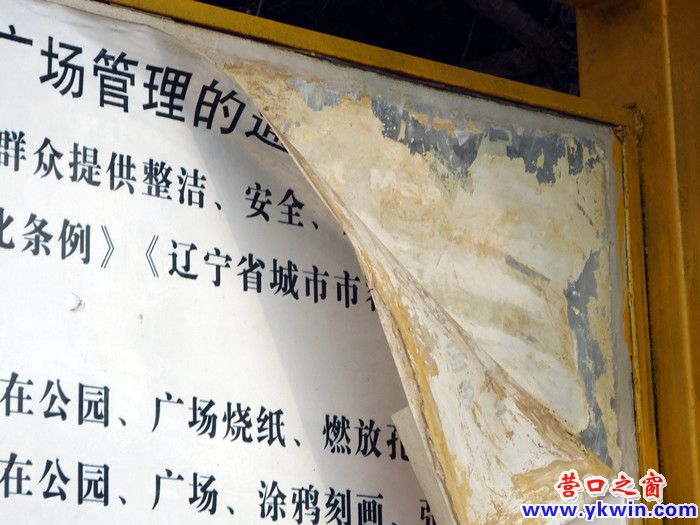 广场管理的通
群众提供整洁、安全、
化条例》《辽宁省城市市
在公园、广场烧纸、燃放孔
在公园、广场、涂鸦刻画、张
营口之窗
www.ykwin.com